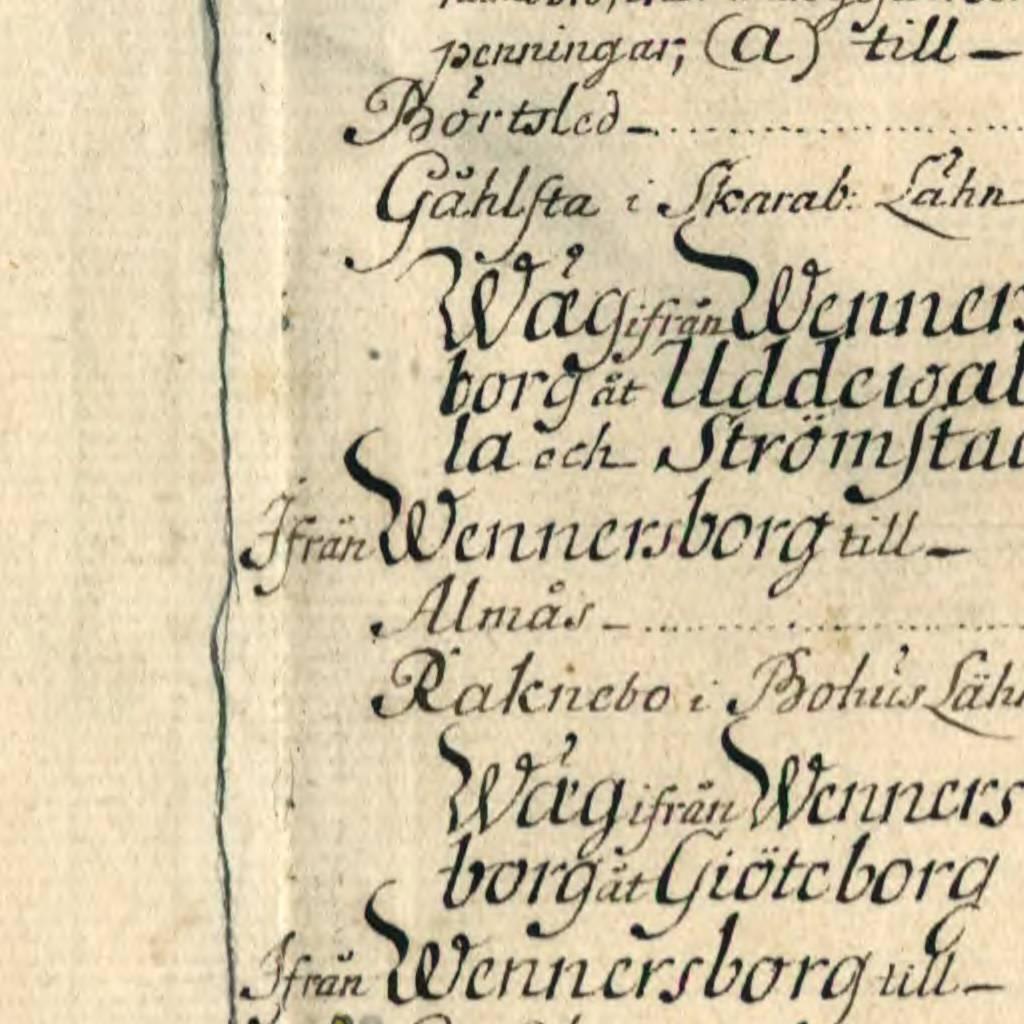 penningar, (a) till —
Börtsled —
Gåhlsta i Skarab: Lähn
Wäg ifrån Wenners
borg åt Uddewal
la och Strömstad
Ifrån Wennersborg till —
Almås —
Raknebo i Bohus Läh
Wäg ifrån Wenners
borg åt Giöteborg
Ifrån Wennersborg till —